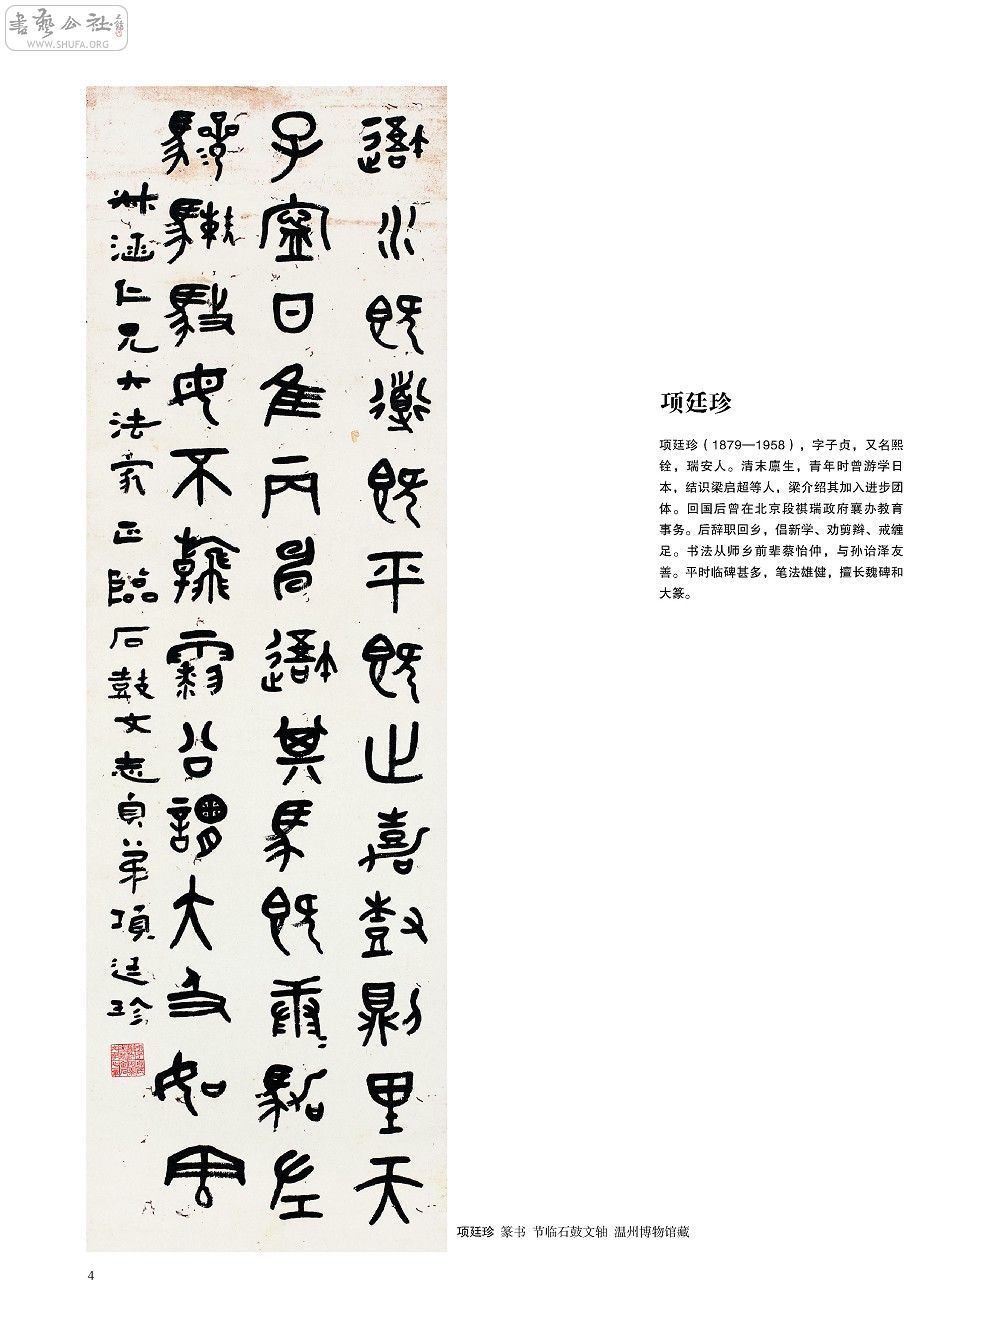 書藝公社
WWW.SHUFA.ORG
水既道既平既止嘉尌則里天
子寧日隹丙其馬既駱左
毋不公謂大如
涵仁兄大法家正臨石鼓文志貞弟項廷珍
项廷珍
项廷珍（1879—1958），字子贞，又名熙
铨，瑞安人。清末廪生，青年时曾游学日
本，结识梁启超等人，梁介绍其加入进步团
体。回国后曾在北京段祺瑞政府襄办教育
事务。后辞职回乡，倡新学、劝剪辫、戒缠
足。书法从师乡前辈蔡怡仲，与孙诒泽友
善。平时临碑甚多，笔法雄健，擅长魏碑和
大篆。
项廷珍 篆书 节临石鼓文轴 温州博物馆藏
4